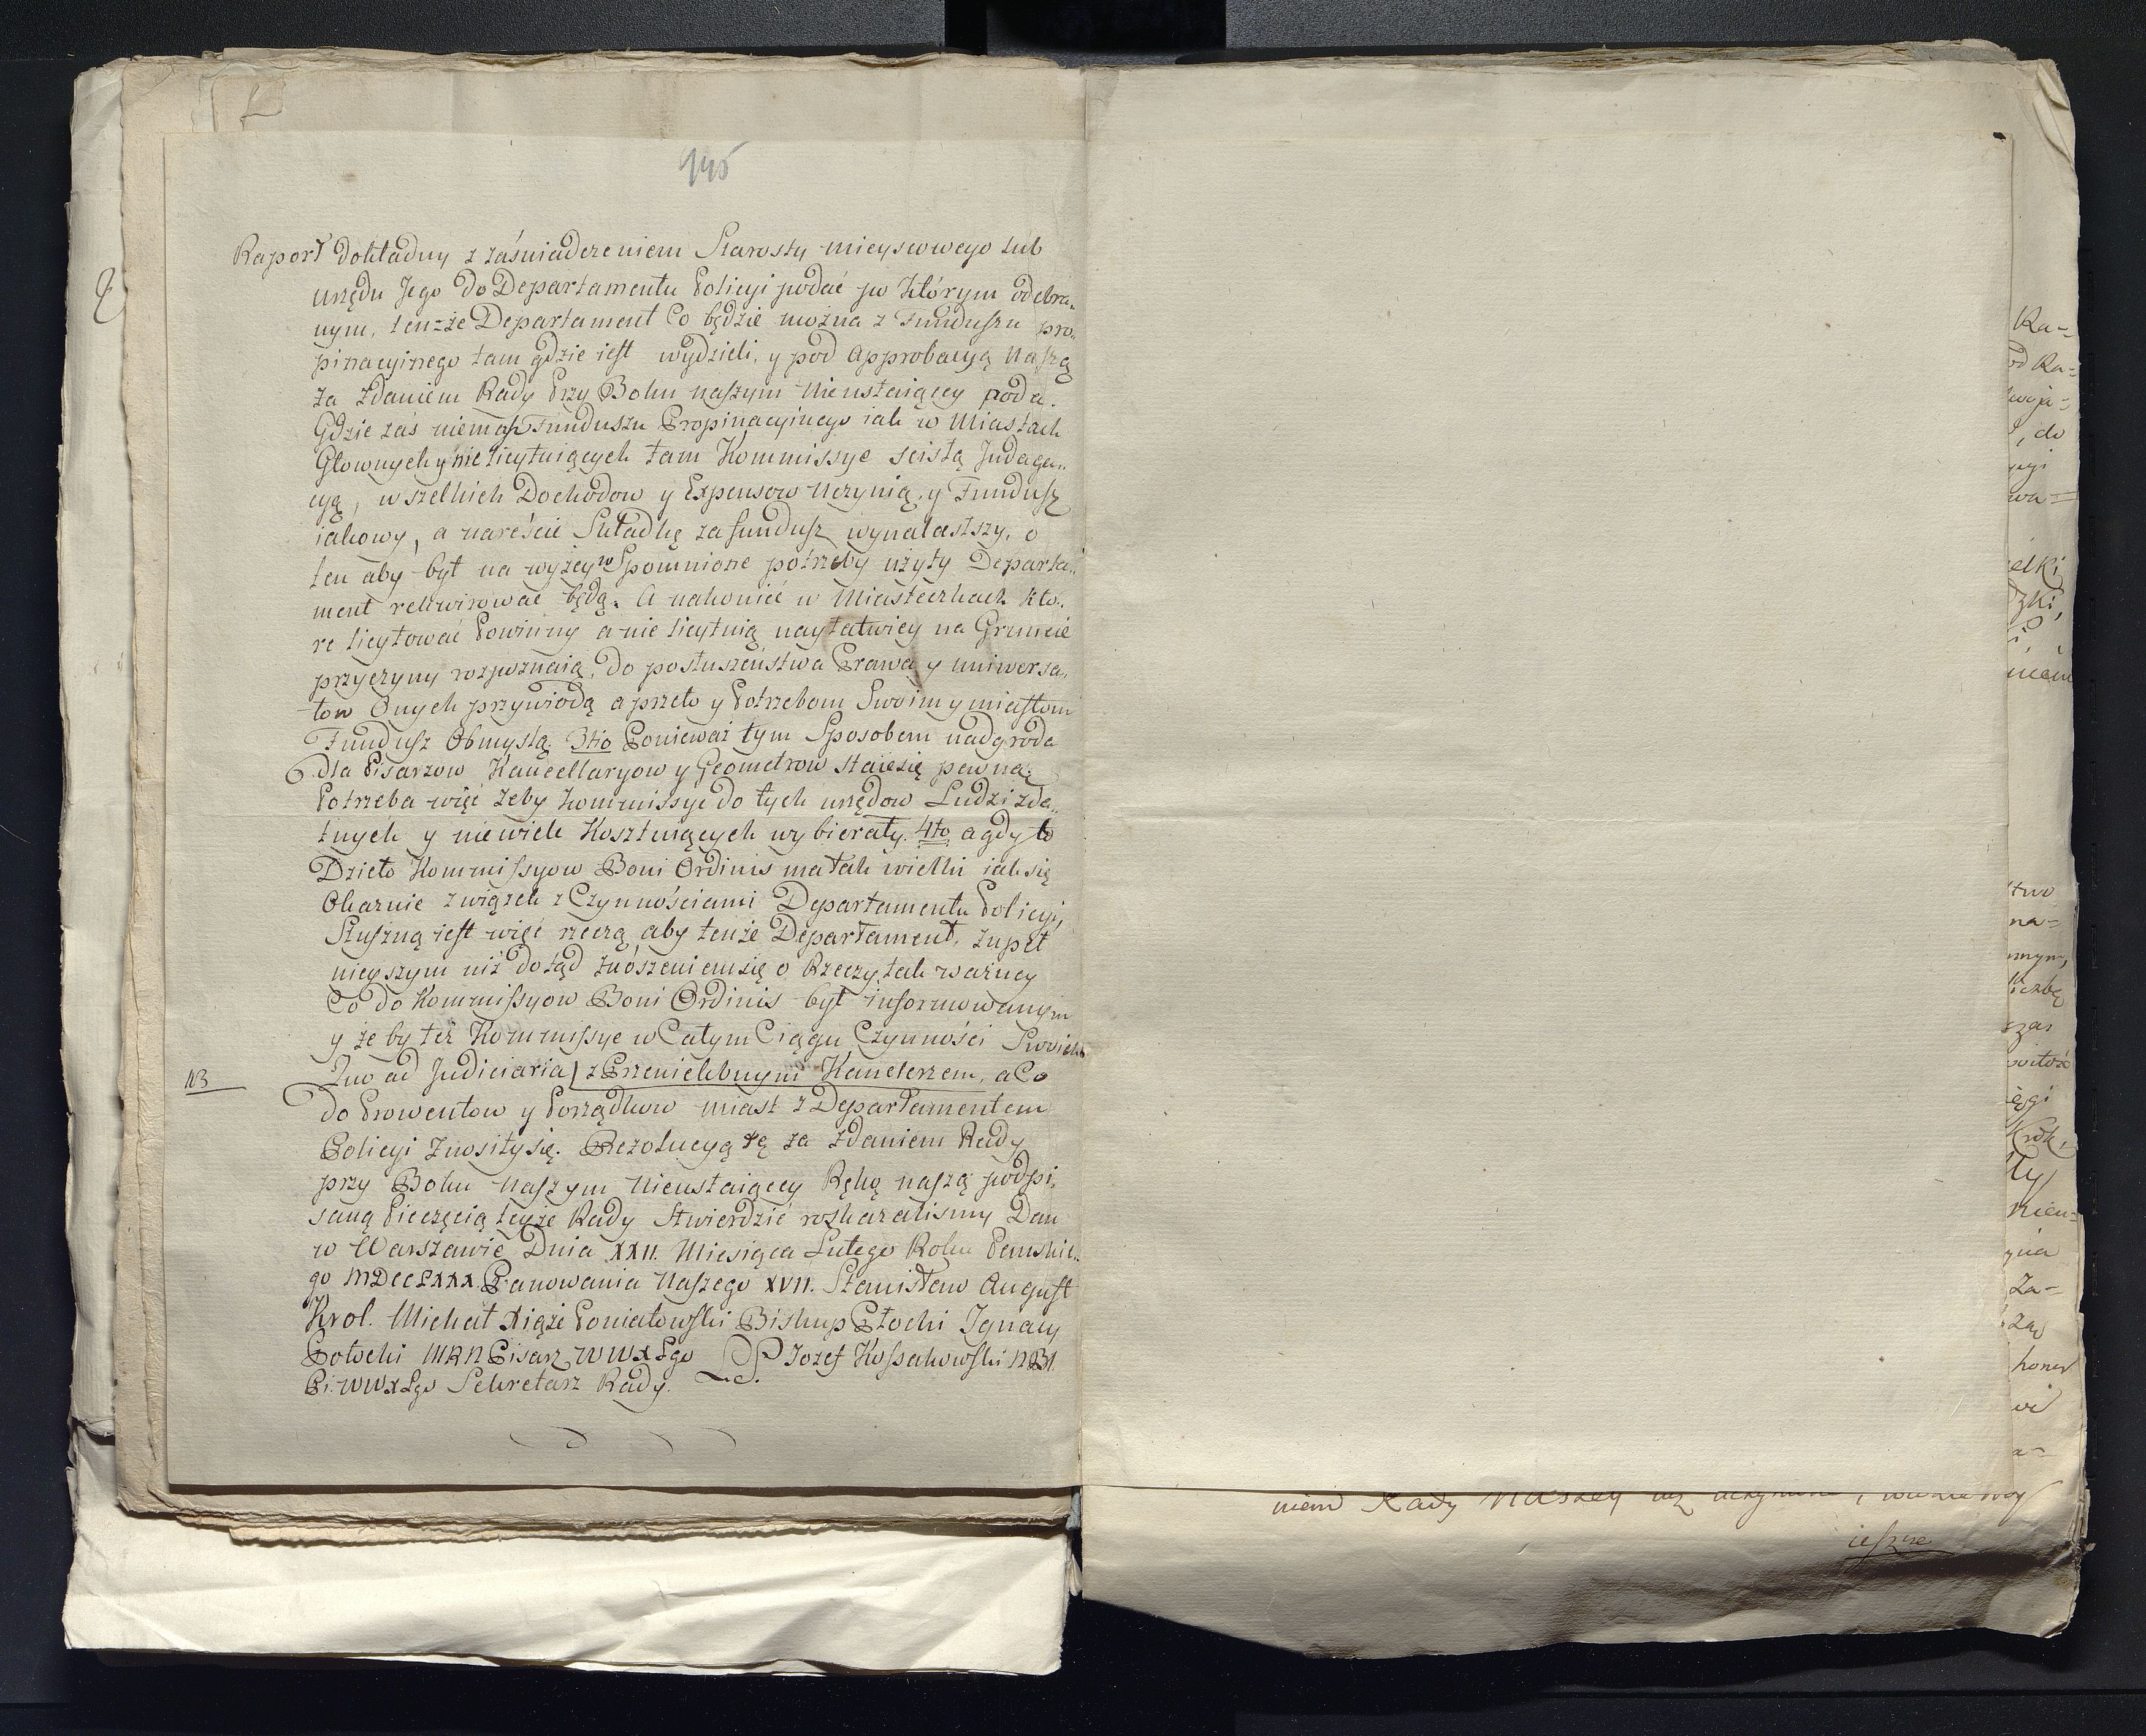 945
Raport dokładny z zaświadczeniem Starosty mieyscowego lub
urzędu Jego do Departamentu Policyi podać po którym odebra„
nym, ten=że Departament Co będzie można z Funduszu pro„
pinacyinego tam gdzie iest wydzieli, y pod Approbacyą Naszą
za Zdaniem Rady Przy Boku naszym Nieustaiący poda.
Gdzie zaś niemasz Funduszu Propinacyinego iak w Miastach
Głownych y nie licytuiących tam Kommissye scisłą Jndaga„
cyą, wszelkich Dochodow y Expensow uczynią, y Fundusz
iakowy, a nareście Składkę za fundusz wynalastszy, o
ten aby był na wyżey wspomnione potrzeby użyty Departa„
ment rekwirować będą. A nakonić w Miasteczkach kto„
re licytować Powinny a nie licytuią nayłatwiey na Gruncie
przyczyny rozpoznaią, do posłuszeństwa Prawa y uniwersa„
łow Onych przywiodą a przeto y Potrzebom Swoim y miastom
Fundusz Obmyslą. 3tio Ponieważ tym Sposobem nadgroda
dla Pisarzow Kancellaryow y Geometrow staie się pewną;
Potrzeba więc żeby Kommissye do tych urzędow Ludzi zda„
tnych y niewiele Kosztuiących wybierały. 4to a gdy to
Dzieło Kommissyow Boni Ordinis ma tak wielki iak się
Okaznie związek z Czynnościami Departamentu Policyi,
Słuszną iest więc rzeczą aby tenże Departament, zupeł
nieyszym niż dotąd znószeniem się o Rzeczy tak ważney
Co do Kommissyow Boni Ordinis był informowanym
y że by też Kommissye w Całym Ciągu Czynności Swoich
NB
Quo ad Judiciaria / z Przewielebnym Kanclerzem, a Co
do Prowentow y Porządkow miast z Departamentem
Policyi Znosiły się. Rezolucyą tę za Zdaniem Rady
przy Boku Naszym Nieustaiący Ręką naszą podpi„
saną Pieczęcią teyże Rady Stwierdzić roskazalismy Dan
w Warszawie Dnia XXII. Miesiąca Lutego Roku Panskie„
go MDCCLXXX. Panowania Naszego XVII. Stanisław August
Krol. Michał Xiąże Poniatowski Biskup Płocki Ignacy
Potocki MRN Pisarz WWXLgo LS Jozef Kossakowski NBI.
Pi. WWXLgo Sekretarz Rady.
Ka=
od Ka=
, do
elki
two
na=
Za=
niem Rady Naszey
ieszcze